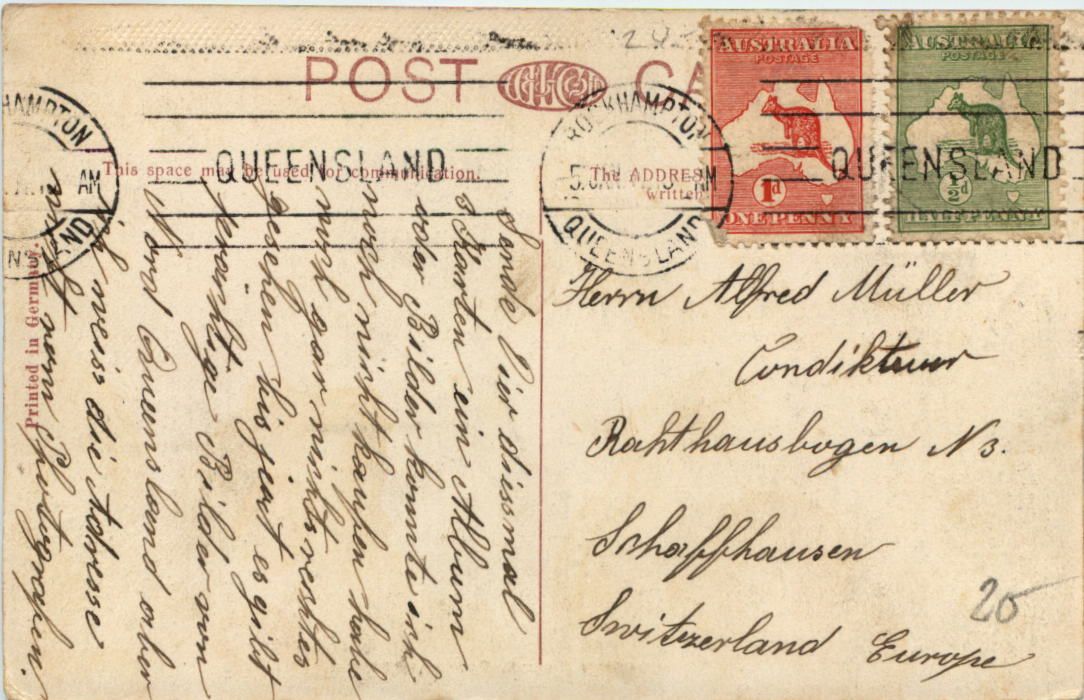 POST CA
This space may be used for communication.
The ADDRESS
written
Printed in Germany.
ROCKHAMPTON
QUEENSLAND
AM
QUEENSLAND
ROCKHAMPTON
5 JAN
AM
QUEENSLAND
QUEENSLAND
AUSTRALIA
POSTAGE
1d
ONE PENNY
AUSTRALIA
POSTAGE
½d
HALF PENNY
Sende Dier dissmal
3 Karten ein Album
oder Bilder konnte ich
noch nicht kaufen habe
noch gar nichts rechtes
gesehen bis jezt es gibt
prächtige Bilder von
Nord Queensland aber
ich weiss die Adresse
nicht vom Photograpfen.
Herrn Alfred Müller
Condikteur
Rahthausbogen N 3.
Schaffhausen
Switzerland Europe
20